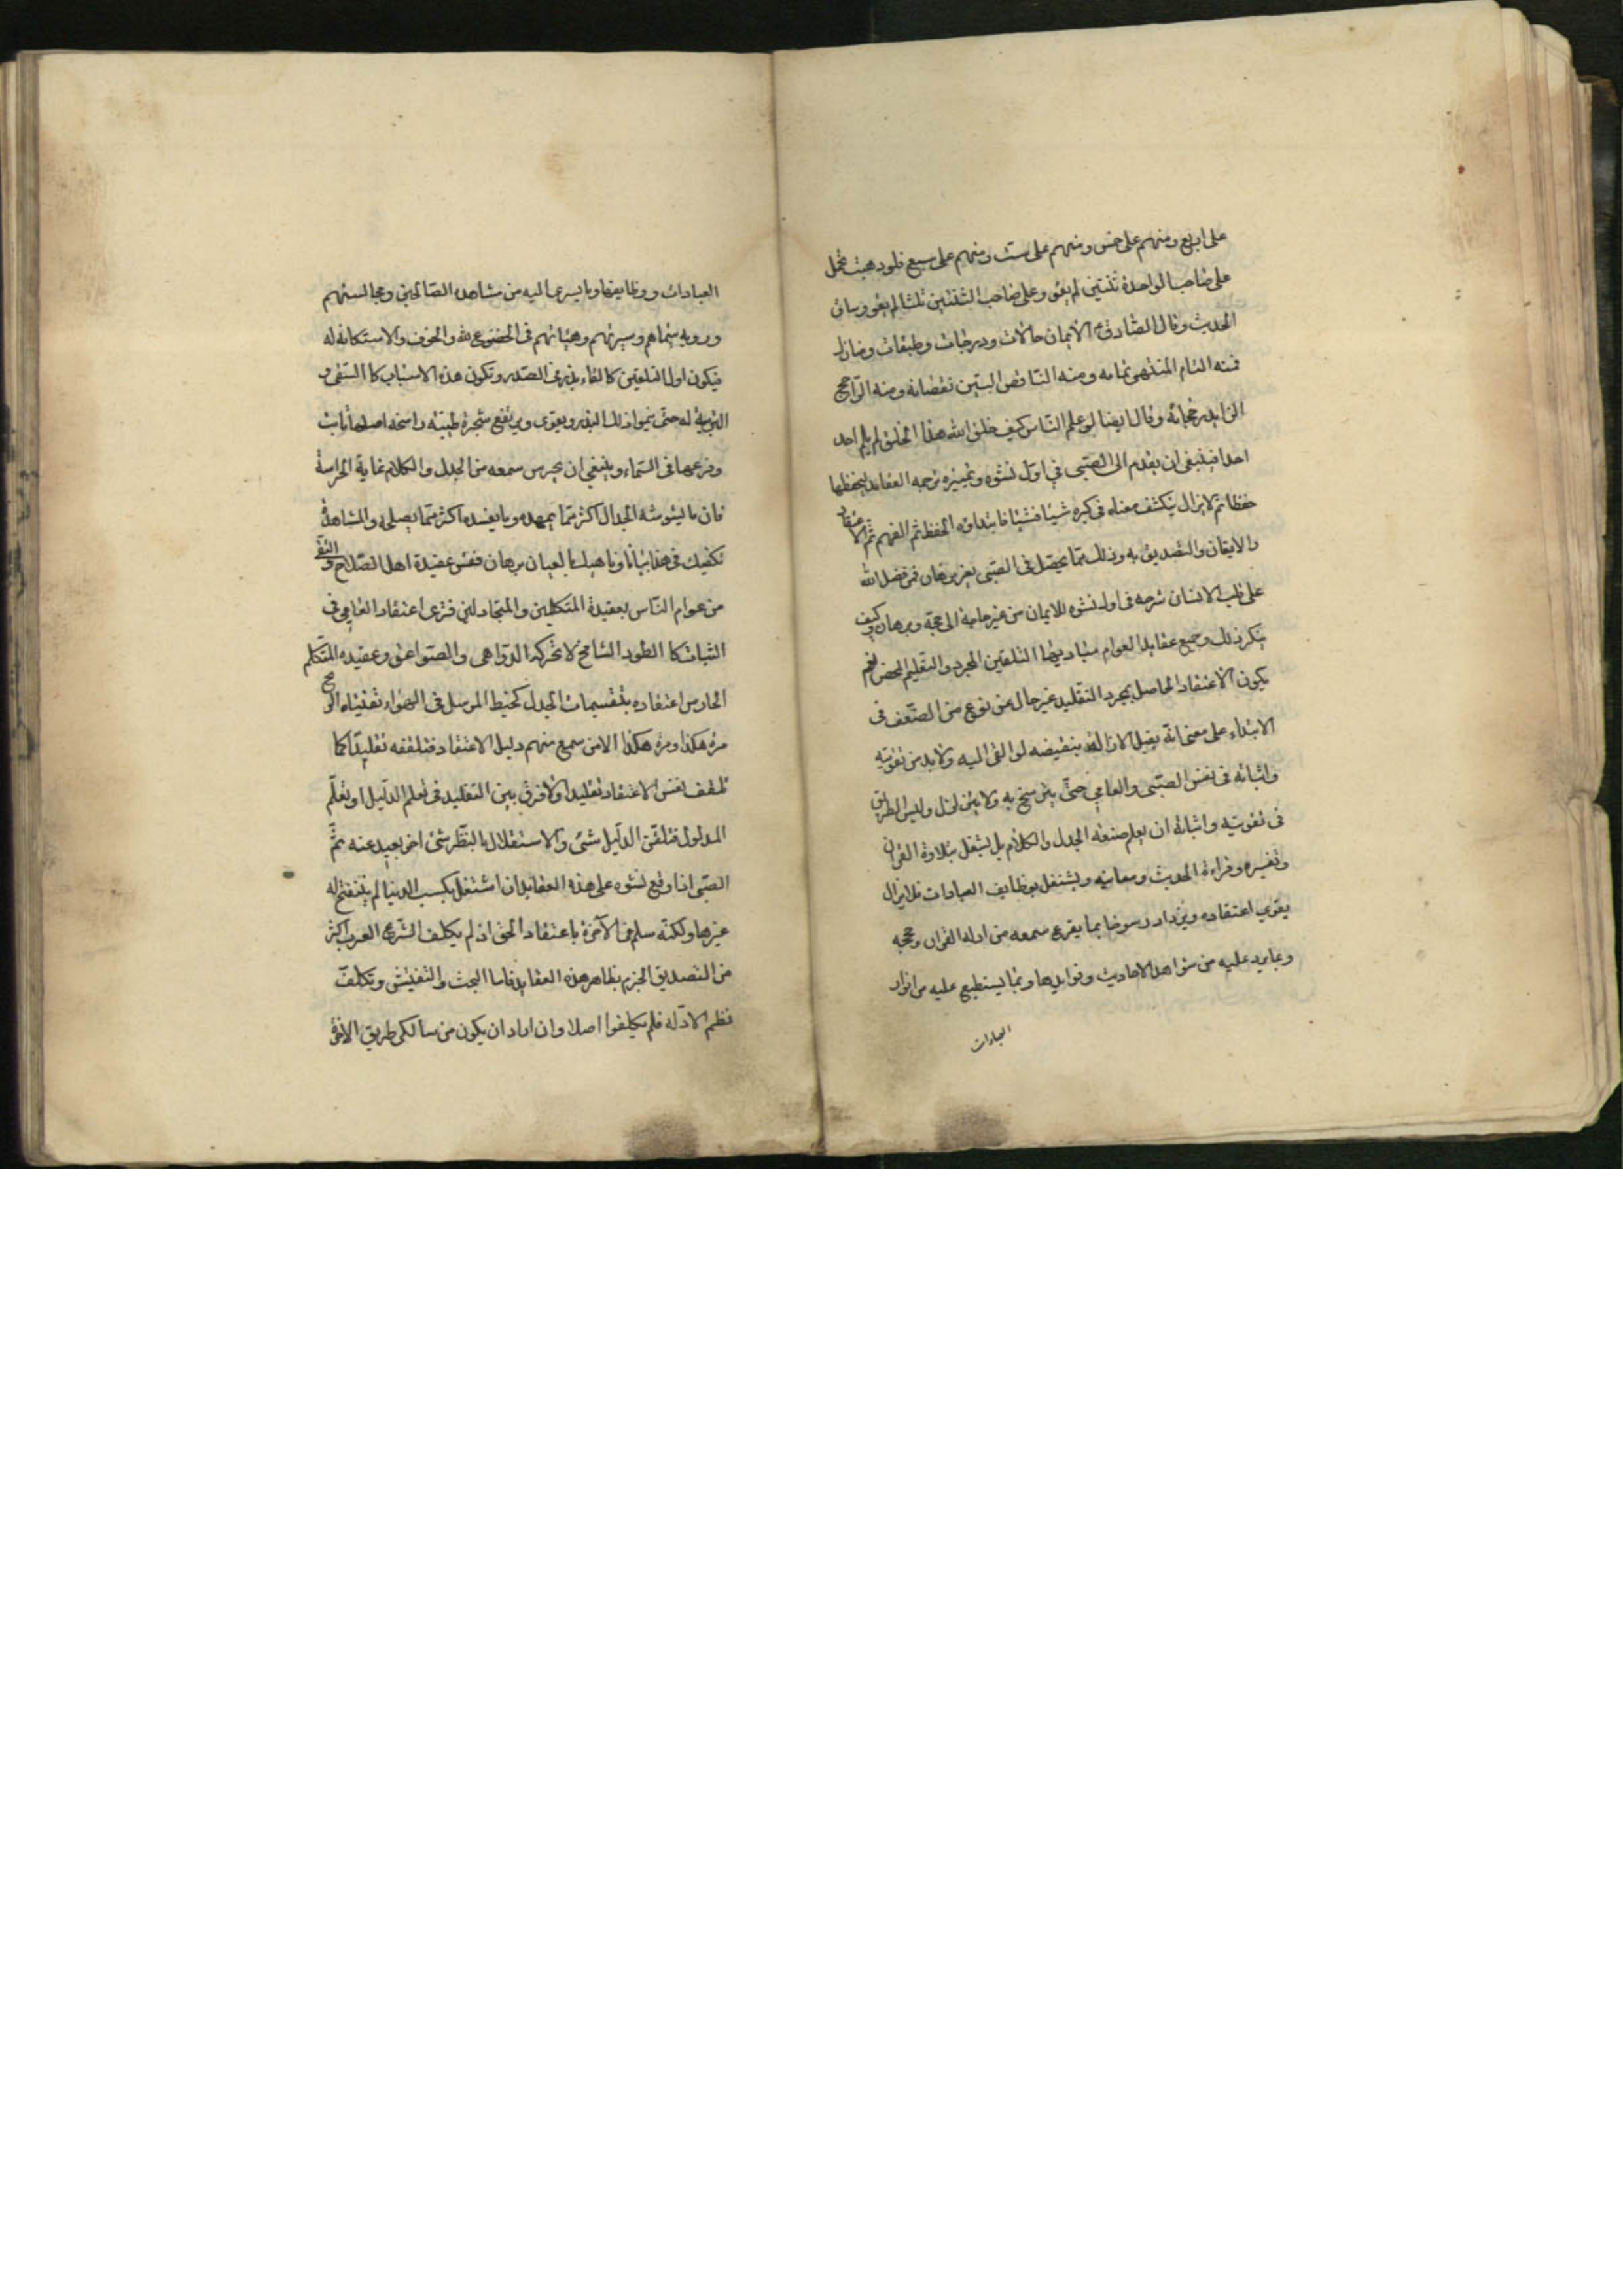 على اربع ومنهم على خمس ومنهم على ست ومنهم على سبع فلو ذهبت تحمل
على صاحب الواحدة ثنتين لم يقو وعلى صاحب الثنتين ثلثا لم يقو وساق
الحديث وقال الصادق ع الايمان حالات ودرجات وطبقات ومنازل
فمنه التام المنتهى تمامه ومنه الناقص البين نقصانه ومنه الراجح
الزايد رجحانه وقال ايضا لو علم الناس كيف خلق الله هذا الخلق لم يلم احد
احدا فينبغى ان يقدم الى الصبى فى اول نشوه وتمييزه ترجمه العقايد ليحفظها
حفظا ثم لا يزال ينكشف معناه فى كبره شيئا فشيئا فابتداؤه الحفظ ثم الفهم ثم الاعتقاد
والايقان والتصديق به وذلك مما يحصل فى الصبى بغير برهان فمن فضل الله
على قلب الانسان شرحه فى اول نشوه للايمان من غير حاجة الى حجة وبرهان وكيف
ينكر ذلك وجميع عقايد العوام مباديها التلقين المجرد والتعليم المحض نعم
يكون الاعتقاد الحاصل بمجرد التقليد غير خال عن نوع من الضعف فى
الابتداء على معنى انه يقبل الازالة بنقيضه لو القى اليه ولا بد من تقويته
واثباته فى نفس الصبى والعامى حتى يترسخ به ولا يتزلزل وليس الطريق
فى تقويته واثباته ان يعلم صنعة الجدل والكلام بل يشتغل بتلاوة القران
وتفسيره وقراءة الحديث ومعانيه ويشتغل بوظايف العبادات فلا يزال
يقوى اعتقاده ويزداد رسوخا بما يقرع سمعه من ادلة القران وحججه
وبما يرد عليه من شواهد الاحاديث وفوايدها وبما يستطيع عليه من انوار
العبادات
العبادات ووظايفها وما يسرى اليه من مشاهدة الصالحين ومجالستهم
ورويه سيماهم وسيرتهم وهيئاتهم فى الخضوع لله والخوف والاستكانة له
فيكون اول التلقين كالقاء بذر فى الصدر وتكون هذه الاسباب كا السقى و
التربية له حتى ينموا ذلك البذر ويقوى ويرتفع شجرة طيبة راسخه اصلها ثابت
وفرعها فى السماء وينبغى ان يحرس سمعه من الجدل والكلام غاية الحراسة
فان ما يشوشه الجدال اكثر مما يمهده وما يفسده اكثر مما يصلحه والمشاهدة
تكفيك فى هذا بيانا وناهيك بالعيان برهان فقس عقيدة اهل الصلاح والتقى
من عوام الناس بعقيدة المتكلمين والمتجادلين فترى اعتقاد العامى فى
الثبات كا الطود الشامخ لا تحركه الدواهى والصواعق وعقيده المتكلم
الحارس اعتقاده بتقسيمات الجدل كخيط المرسل فى الهواء تفيئه الريح
مرة هكذا ومرة هكذا الا من سمع منهم دليل الاعتقاد فتلقفه تقليدا كما
تلقف نفس الاعتقاد تقليدا ولا فرق بين التقليد فى تعلم الدليل او تعلم
المدلول فتلقن الدليل شئ والاستقلال بالنظر شئ اخر بعيد عنه ثم
الصبى اذا وقع نشوه على هذه العقايد ان اشتغل بكسب الدنيا لم ينفتح له
غيرها ولكنه سلم فى الآخرة باعتقاد الحق اذ لم يكلف الشرع العرب اكثر
من التصديق الجزم بظاهر هذه العقايد فاما البحث والتفتيش وتكلف
نظم الادله فلم يكلفوا اصلا وان اراد ان يكون من سالكى طريق الاخرة